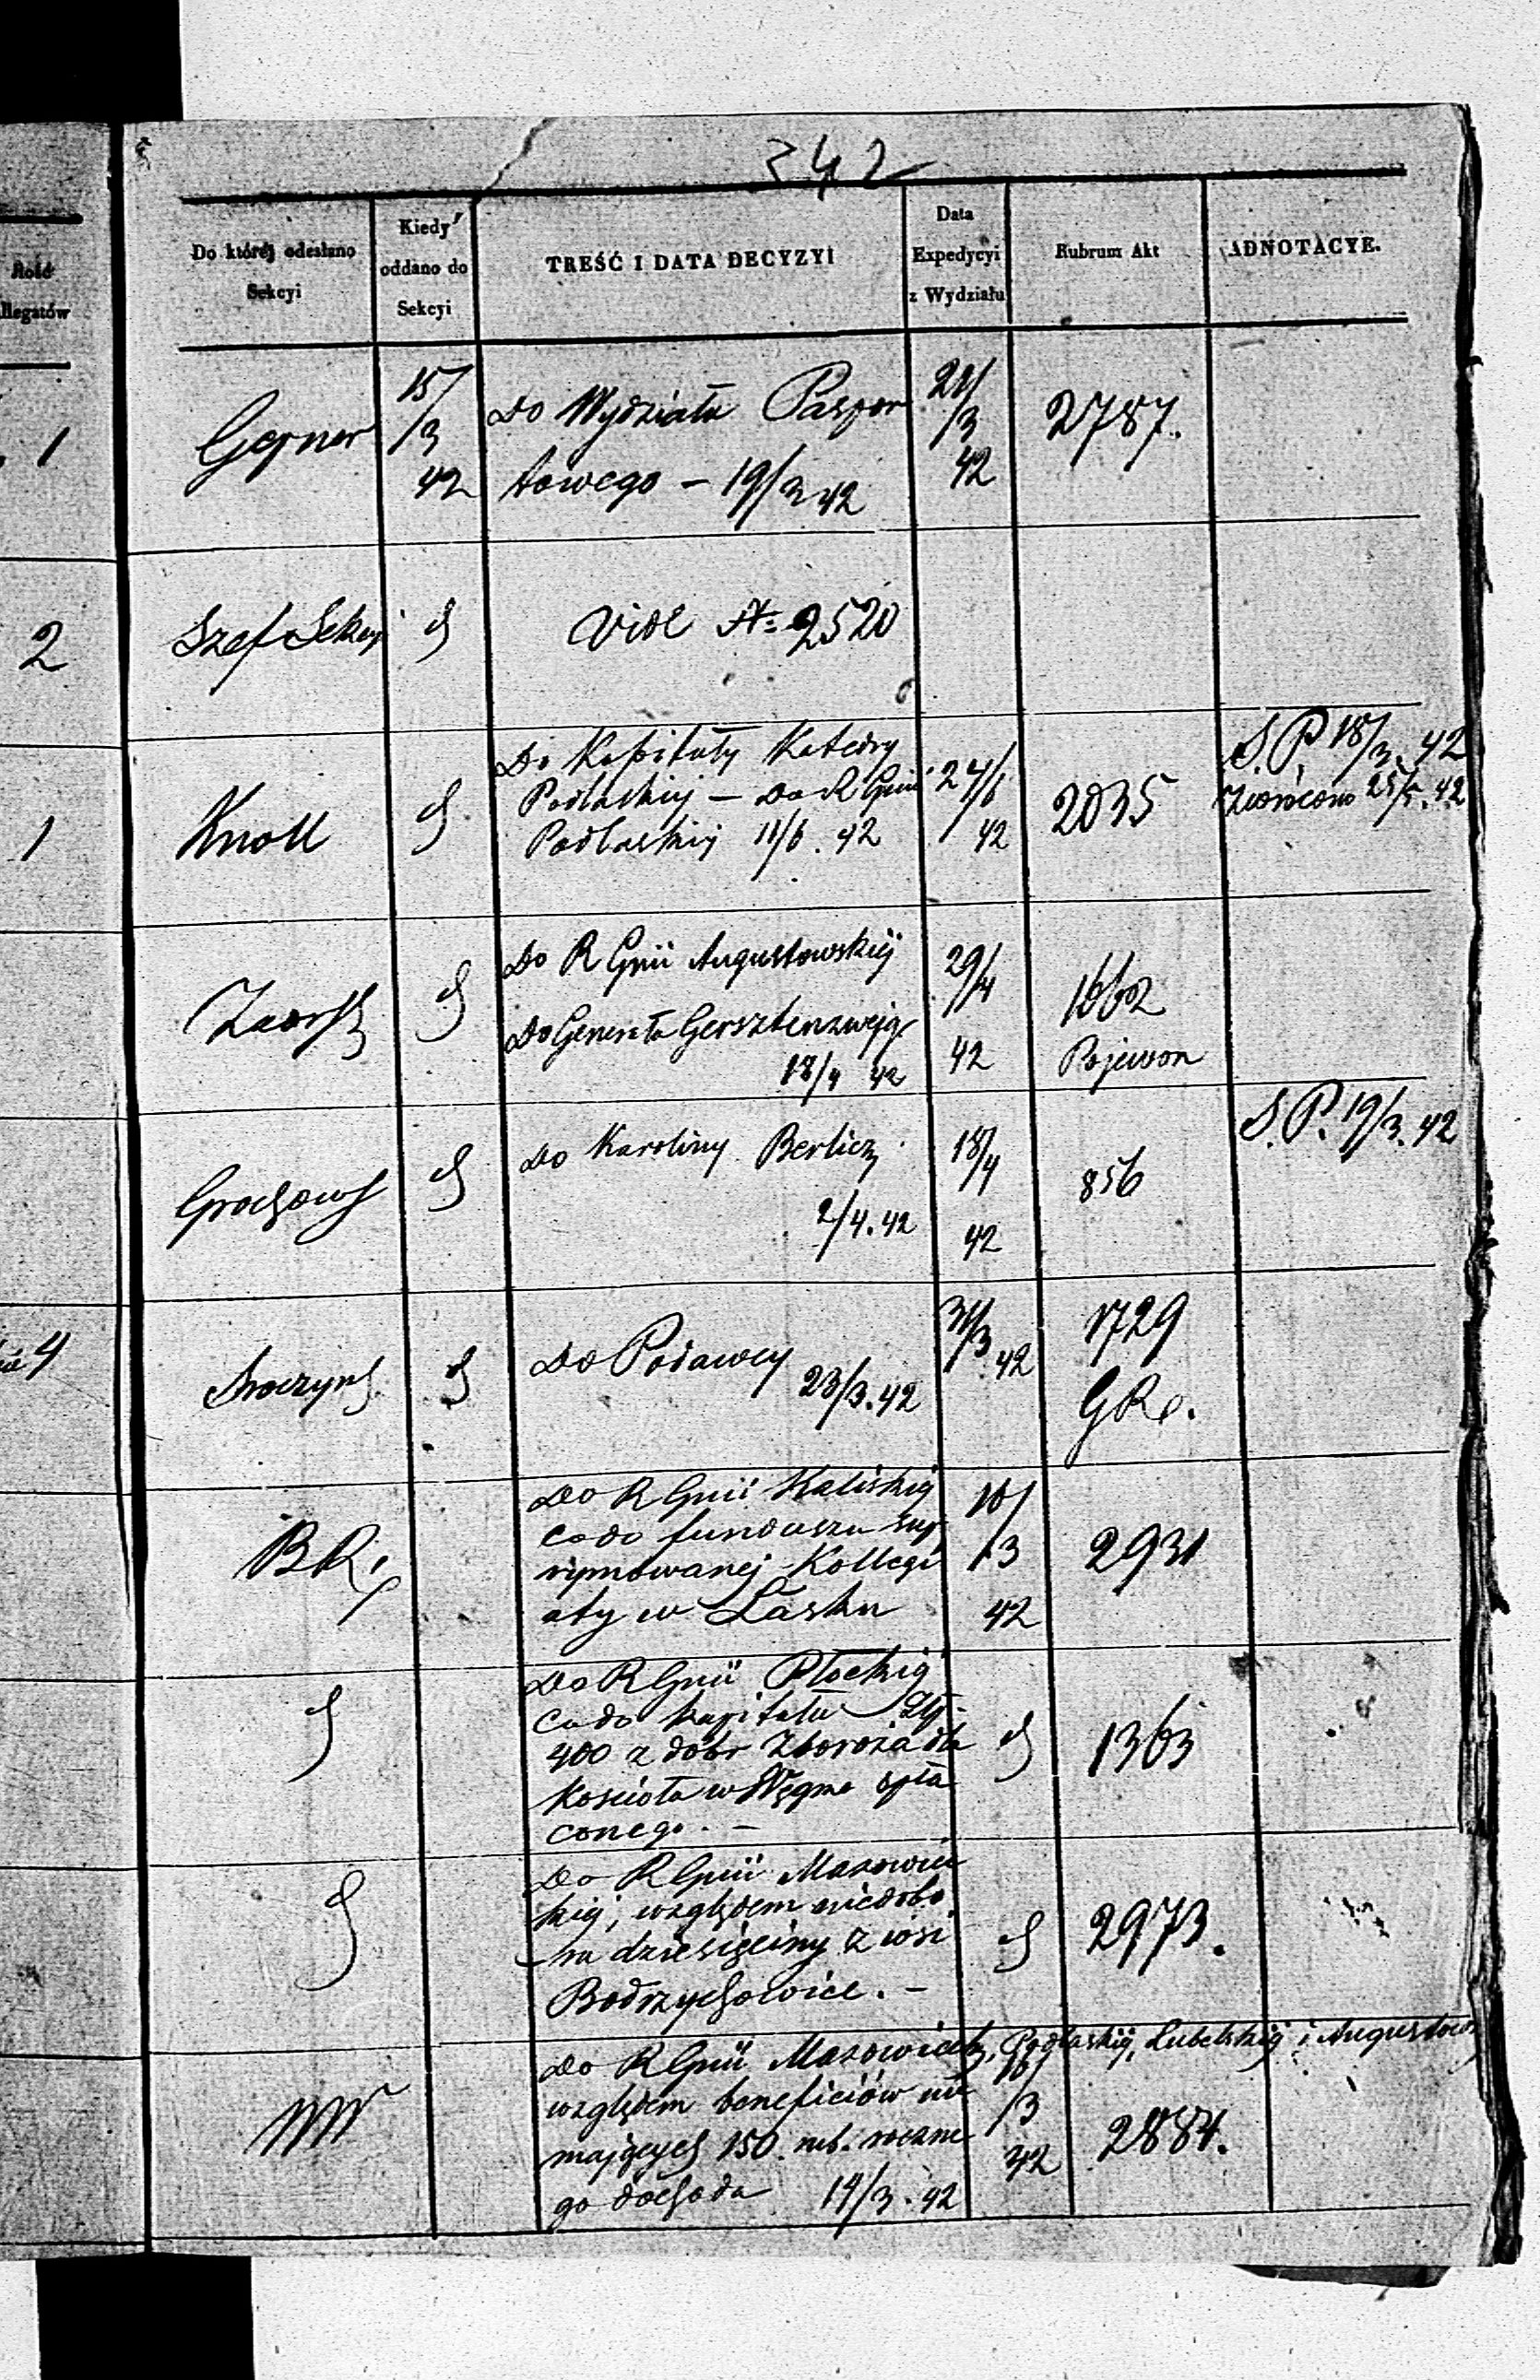 242
Ilość
llegatów
Do któréj odesłano
Sekcyi
Kiedy
oddano do
Sekcyi
TREŚĆ I DATA DECYZYI
Data
Expedycyi
z Wydziału
Rubrum Akt
ADNOTACYE.
1
Gerner
15/
/3
42
Do Wydziału Paszpor
towego – 19/3 42
21/
/3
42
2787.
2
Szef Sekcyi
Vide N= 2520
1
Knoll
Do Kapituły Katedry
Podlaskiej – Do R Gnii
Podlaskiej 11/6. 42
24/6
42
2035
S. P. 18/3. 42
Zwrócono 25/5. 42
Do R Gnii Augustowskiéj
Do Generała Gersztenzweiga
18/4 42
29/4
42
1662
Pojewon
Do Karoliny Berlicz
2/4. 42
18/4
42
856
S. P. 19/3. 42
4
Do Podawcy
23/3. 42
31/3
42
1729
GR.
BR.
Do R Gnii Kaliskiej
co do funduszu sup
rymowanej Kollegi
aty w Łasku
16/
/3
42
2931
Do R Gnii Płockiej
co do kapitału Złp.
400 z dobr Zboroża dla
Kościoła w Węgrze opła
conego. –
1363
Do R Gnii Mazowiec
kiej, względem niedobo
ru dziesięciny z wsi
Bodrzychowice. –
2973.
Do R Gnii Mazowieck, Podlaskiéj, Lubelskiéj i Augustows
względem beneficiów nie
mających 150. rub. roczne
go dochodu 14/3. 42
16/
/3
42
2884.